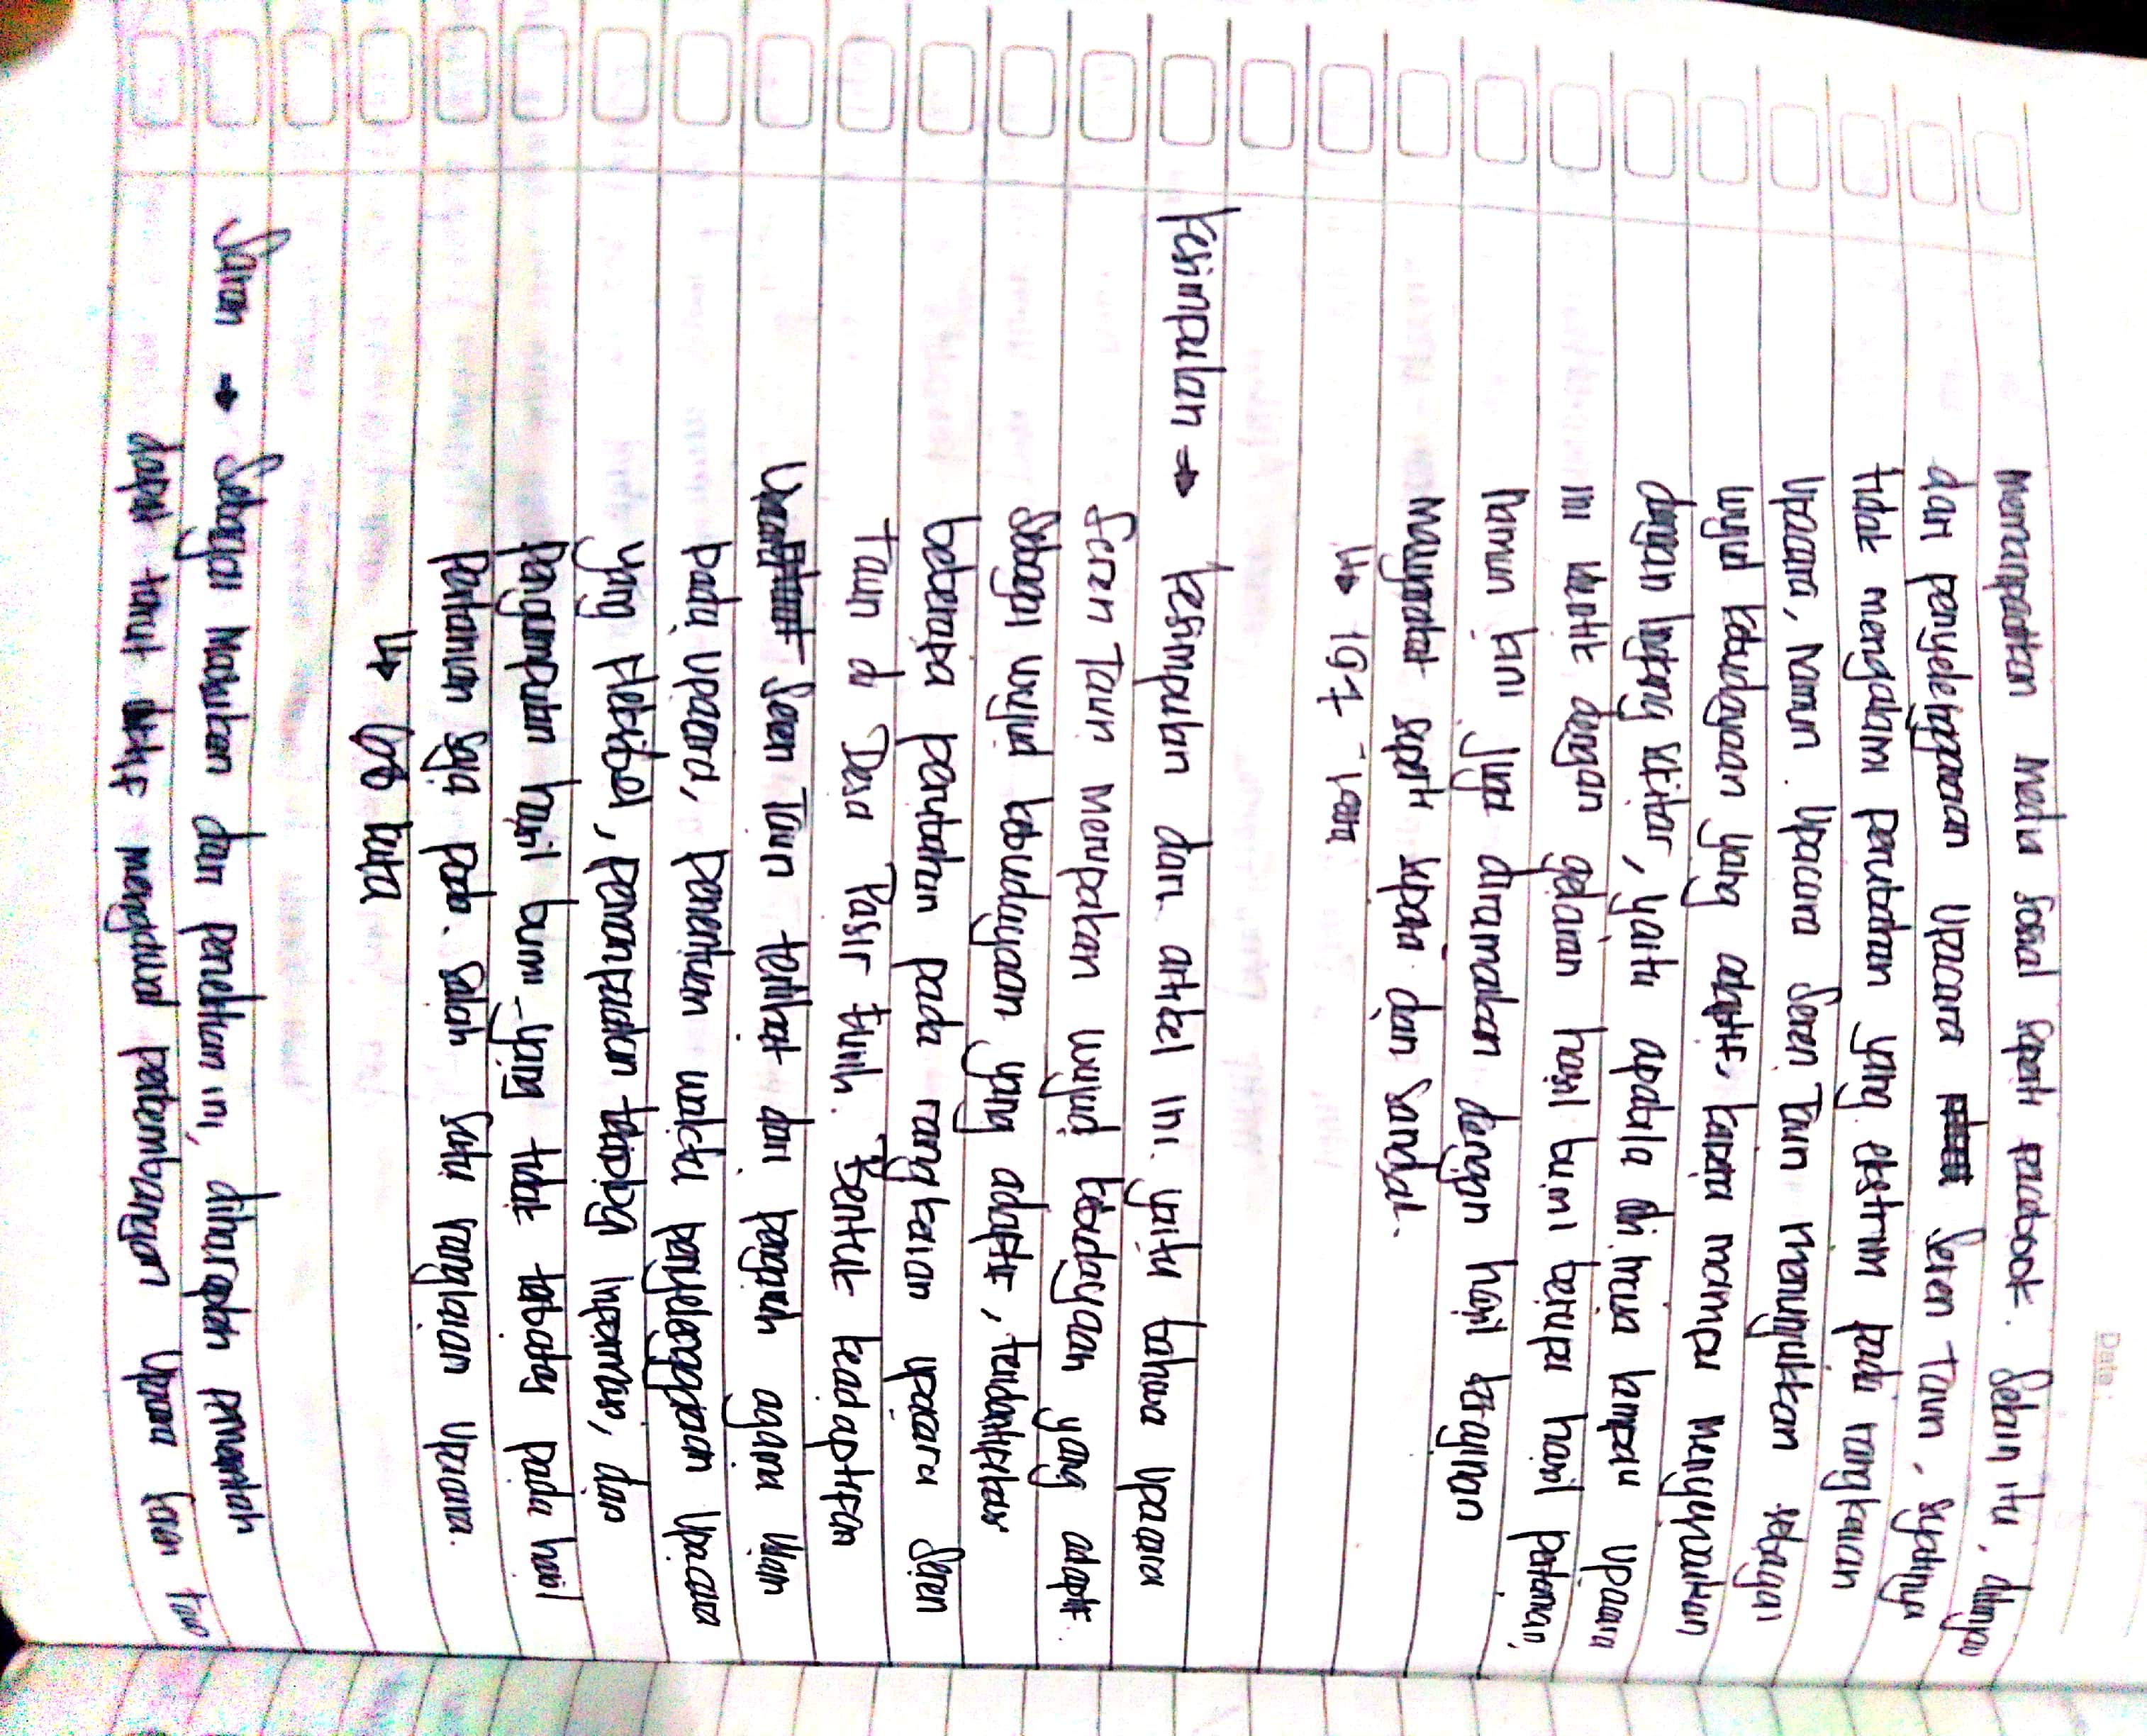 Date:
memanfaatkan media sosial seperti facebook. Selain itu, ditinjau
dari penyelenggaraan Upacara Seren Taun, sejatinya
tidak mengalami perubahan yang ekstrim pada rangkaian
Upacara, Namun Upacara Seren Taun menunjukkan sebagai
wujud kebudayaan yang adaptif, karena mampu menyesuaikan
dengan lingkung sekitar, yaitu apabila di masa lampau Upacara
ini identik dengan gelaran hasil bumi berupa hasil pertanian,
Namun kini juga diramaikan dengan hasil kerajinan
masyarakat seperti sepatu dan sandal.
↳ 197 kata
kesimpulan → kesimpulan dari artikel ini yaitu bahwa Upacara
Seren Taun merupakan wujud kebudayaan yang adaptif.
Sebagai wujud kebudayaan yang adaptif, teridentifikasi
beberapa perubahan pada rangkaian upacara Seren
Taun di Desa Pasir Eurih. Bentuk keadaptifan
Seren Taun terlihat dari pengaruh agama Islam
pada upacara, penentuan waktu penyelenggaraan Upacara
yang fleksibel, pemanfaatan teknologi informasi, dan
Pengumpulan hasil bumi yang tidak terbatas pada hasil
Pertanian saja pada salah satu rangkaian Upacara.
↳ 66 kata
Saran → Sebagai Masukan dari penelitian ini, diharapkan pemerintah
dapat turut mengawal perkembangan Upacara Seren Taun